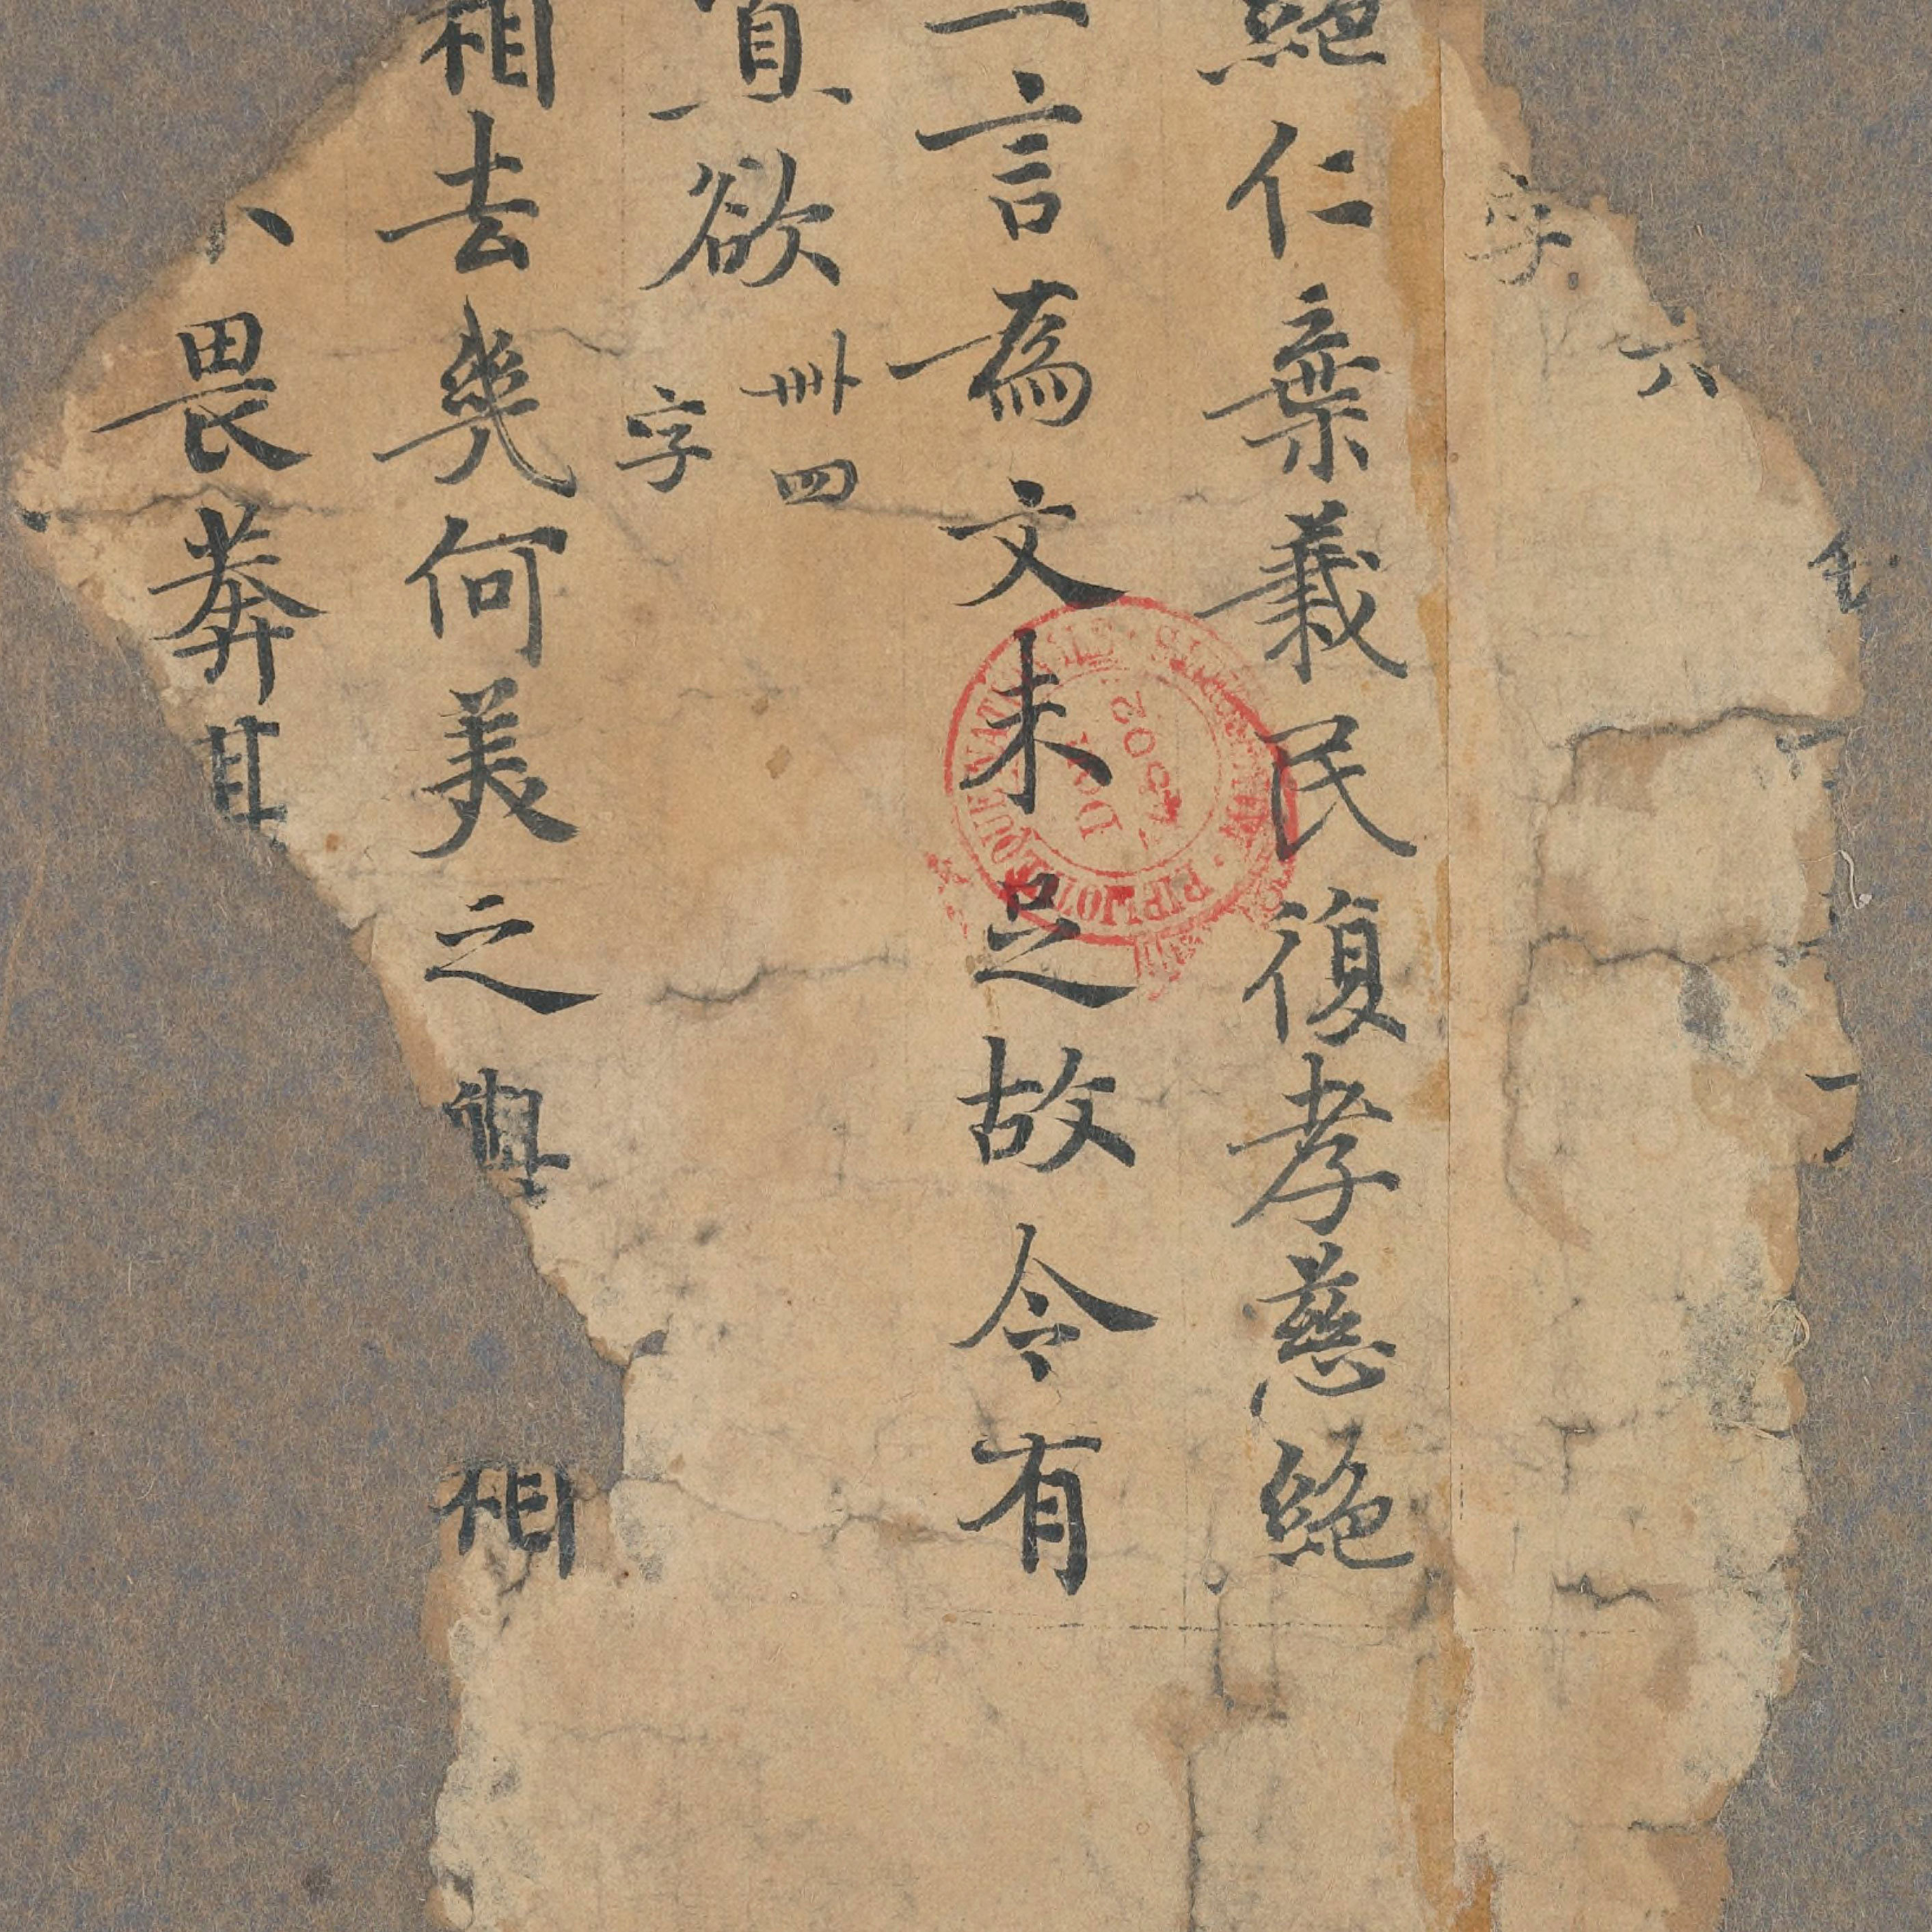 六
字
絕仁棄義民復孝慈絕
言為文未足故令有
欲卌四
字
相去幾何美之與
相
畏莽其